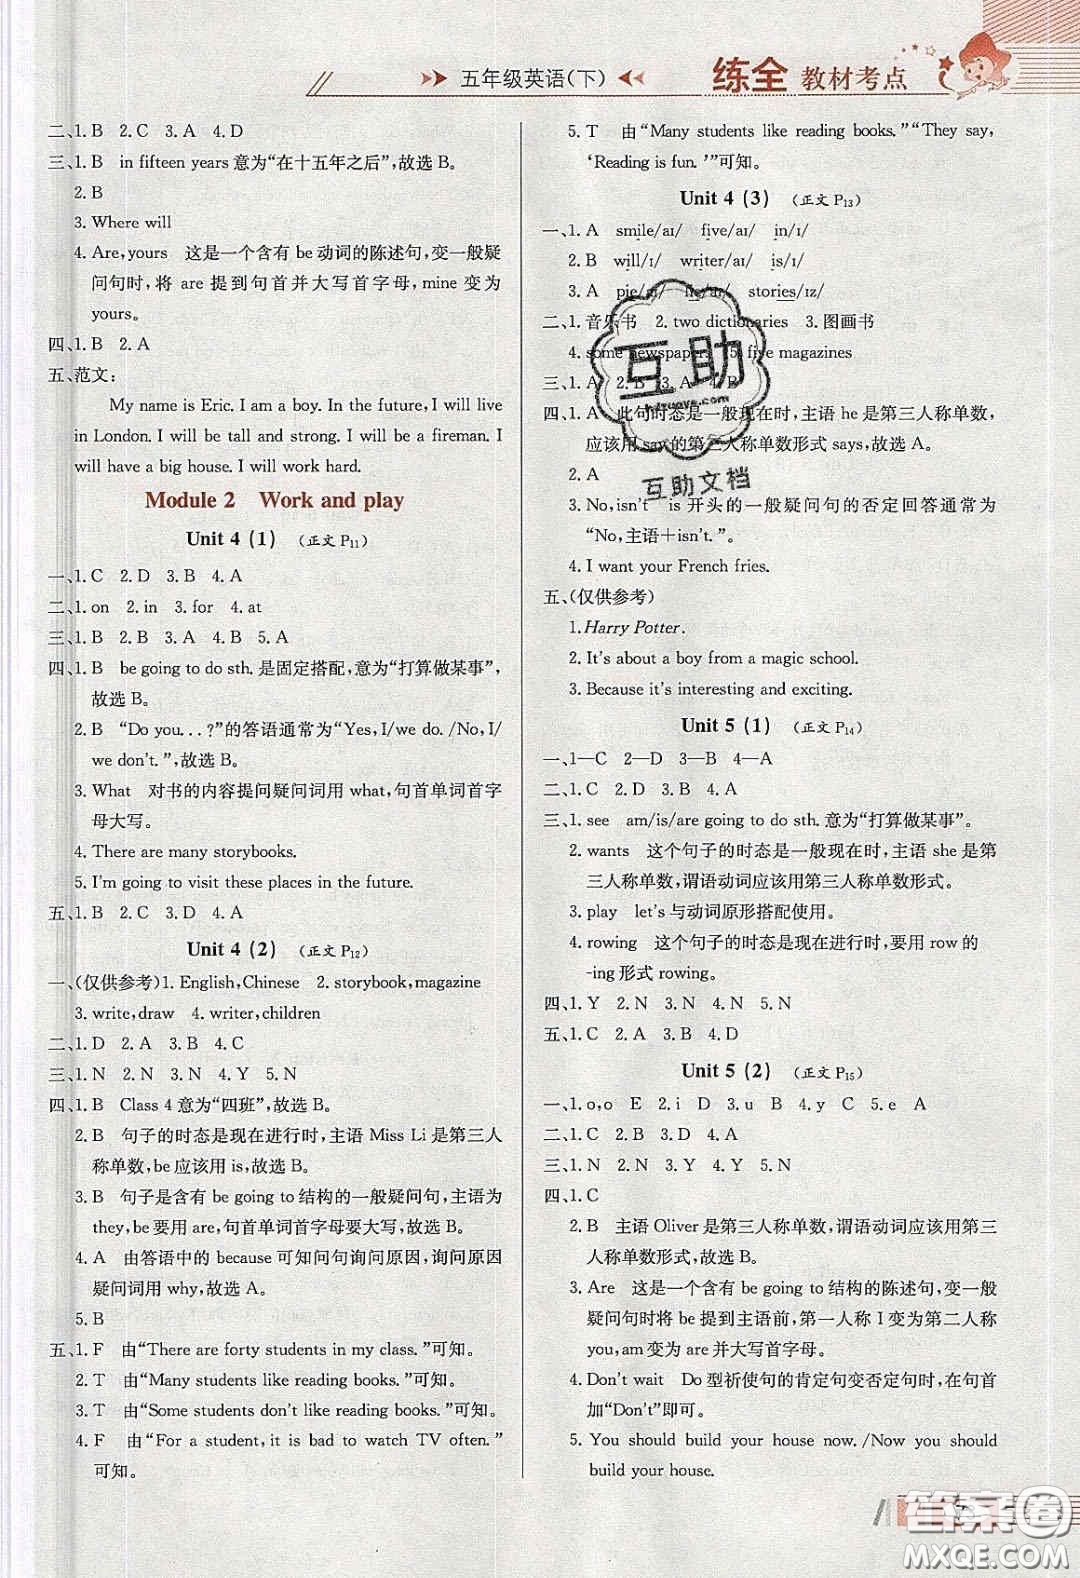 五年级英语(下)
练全 教材考点
二、1. B 2. C 3. A 4. D
三、1. B in fifteen years 意为“在十五年之后”,故选 B。
2. B
3. Where will
4. Are,yours 这是一个含有 be 动词的陈述句,变一般疑
问句时,将 are 提到句首并大写首字母, mine 变为
yours。
四、1. B 2. A
五、范文:
My name is Eric. I am a boy. In the future, I will live
in London. I will be tall and strong. I will be a fireman. I
will have a big house. I will work hard.
Module 2 Work and play
Unit 4 (1) (正文 P11)
一、1. C 2. D 3. B 4. A
二、1. on 2. in 3. for 4. at
三、1. B 2. B 3. A 4. B 5. A
四、1. B be going to do sth. 是固定搭配,意为“打算做某事”,
故选 B。
2. B “Do you. . . ?”的答语通常为“Yes, I/we do. /No, I/
we don't. ”,故选 B。
3. What 对书的内容提问疑问词用 what,句首单词首字
母大写。
4. There are many storybooks.
5. I'm going to visit these places in the future.
五、1. B 2. C 3. D 4. A
Unit 4 (2) (正文 P12)
一、(仅供参考)1. English, Chinese 2. storybook, magazine
3. write, draw 4. writer, children
二、1. D 2. A 3. B 4. C
三、1. N 2. N 3. N 4. Y 5. N
四、1. B Class 4 意为“四班”,故选 B。
2. B 句子的时态是现在进行时,主语 Miss Li 是第三人
称单数, be 应该用 is,故选 B。
3. B 句子是含有 be going to 结构的一般疑问句,主语为
they, be 要用 are,句首单词首字母要大写,故选 B。
4. A 由答语中的 because 可知问句询问原因,询问原因
疑问词用 why,故选 A。
5. B
五、1. F 由“There are forty students in my class. ”可知。
2. T 由“Many students like reading books. ”可知。
3. T 由“Some students don't like reading books. ”可知。
4. F 由“For a student, it is bad to watch TV often. ”
可知。
5. T 由“Many students like reading books. ”“They say,
‘Reading is fun. ’”可知。
Unit 4 (3) (正文 P13)
一、1. A smile/aɪ/ five/aɪ/ in/ɪ/
2. B will/ɪ/ writer/aɪ/ is/ɪ/
3. A pie/aɪ/ lie/aɪ/ stories/ɪz/
二、1. 音乐书 2. two dictionaries 3. 图画书
4. some newspapers 5. five magazines
三、1. A 2. B 3. A 4. B
四、1. A 此句时态是一般现在时,主语 he 是第三人称单数,
应该用 say 的第三人称单数形式 says,故选 A。
2. A
3. No, isn't is 开头的一般疑问句的否定回答通常为
“No,主语+isn't. ”。
4. I want your French fries.
五、(仅供参考)
1. Harry Potter.
2. It's about a boy from a magic school.
3. Because it's interesting and exciting.
Unit 5 (1) (正文 P14)
一、1—C 2—D 3—B 4—A
二、1. C 2. D 3. A 4. B
三、1. see am/is/are going to do sth. 意为“打算做某事”。
2. wants 这个句子的时态是一般现在时,主语 she 是第
三人称单数,谓语动词应该用第三人称单数形式。
3. play let's 与动词原形搭配使用。
4. rowing 这个句子的时态是现在进行时,要用 row 的
-ing 形式 rowing。
四、1. Y 2. N 3. N 4. N 5. N
五、1. C 2. A 3. B 4. D
Unit 5 (2) (正文 P15)
一、1. o,o E 2. i D 3. u B 4. y C 5. e A
二、1. C 2. A 3. D 4. B
三、1. N 2. N 3. Y 4. Y 5. N
四、1. C
2. B 主语 Oliver 是第三人称单数,谓语动词应该用第三
人称单数形式,故选 B。
3. Are 这是一个含有 be going to 结构的陈述句,变一般
疑问句时将 be 提到主语前,第一人称 I 变为第二人称
you, am 变为 are 并大写首字母。
4. Don't wait Do 型祈使句的肯定句变否定句时,在句首
加“Don't”即可。
5. You should build your house now. /Now you should
build your house.
互助
互助文档
答案圈
MXQE.COM